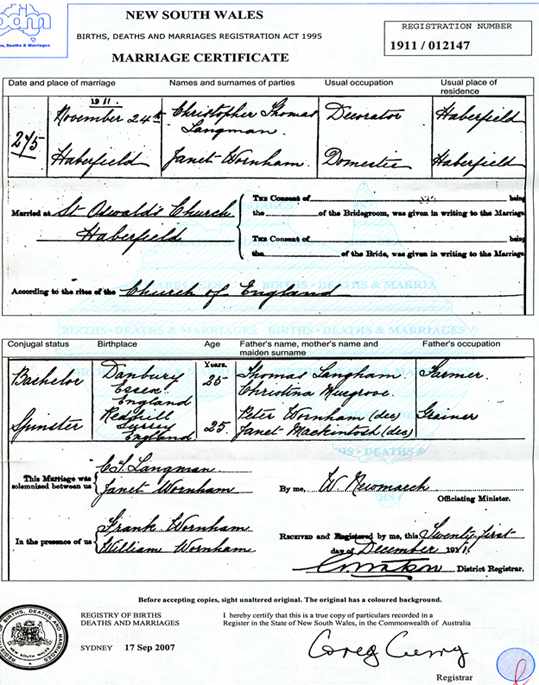 bdm
Births, Deaths & Marriages
NEW SOUTH WALES
BIRTHS, DEATHS AND MARRIAGES REGISTRATION ACT 1995
MARRIAGE CERTIFICATE
REGISTRATION NUMBER
1911 / 012147
Date and place of marriage Names and surnames of parties Usual occupation Usual place of residence
1911.
November 24th Christopher Thomas Langman. Decorator Haberfield
275
Haberfield Janet Wornham. Domestic Haberfield
Married at St Oswald's Church
Haberfield
THE Consent of being
the of the Bridegroom, was given in writing to the Marriage
THE Consent of being
the of the Bride, was given in writing to the Marriage
According to the rites of the Church of England
BIRTHS · DEATHS & MARRIAGES BIRTHS · DEATHS & MARRIAGES
Conjugal status Birthplace Age Father's name, mother's name and maiden surname Father's occupation
Years.
Bachelor Danbury Essex England 25 Thomas Langham. Christina Musgrove. Farmer.
Spinster Redhill Surrey England 25. Peter Wornham (dec) Janet Mackintosh (dec) Grainer
This Marriage was solemnised between us
C. T. Langman
Janet Wornham
By me, W Newmarch
Officiating Minister.
In the presence of us
Frank Wornham
William Wornham
RECEIVED and Registered by me, this Twenty first
day of December 1911.
District Registrar.
Before accepting copies, sight unaltered original. The original has a coloured background.
REGISTRY OF BIRTHS
DEATHS AND MARRIAGES
I hereby certify that this is a true copy of particulars recorded in a
Register in the State of New South Wales, in the Commonwealth of Australia
SYDNEY 17 Sep 2007
Greg Curry
Registrar